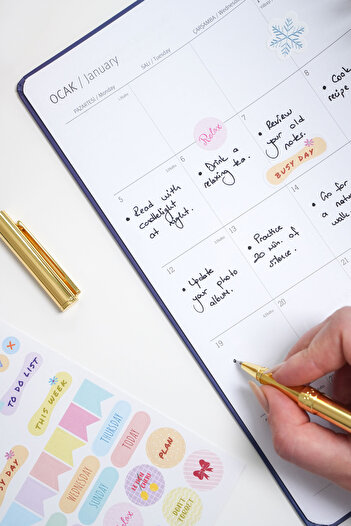 OCAK / January
PAZARTESİ / Monday
SALI / Tuesday
ÇARŞAMBA / Wednesday
5
• Read with
candlelight
at night.
6
Relax
• Drink a
relaxing tea.
7
• Review
your old
notes.
BUSY DAY
8
• Cook
recipe
12
• Update
your photo
album.
13
• Practice
20 min. of
silence.
14
• Go for
a nature
walk
19
20
TO DO LIST
THIS WEEK
THURSDAY
TODAY
PLAN
WEDNESDAY
SUNDAY
DON'T
FORGET
Relax